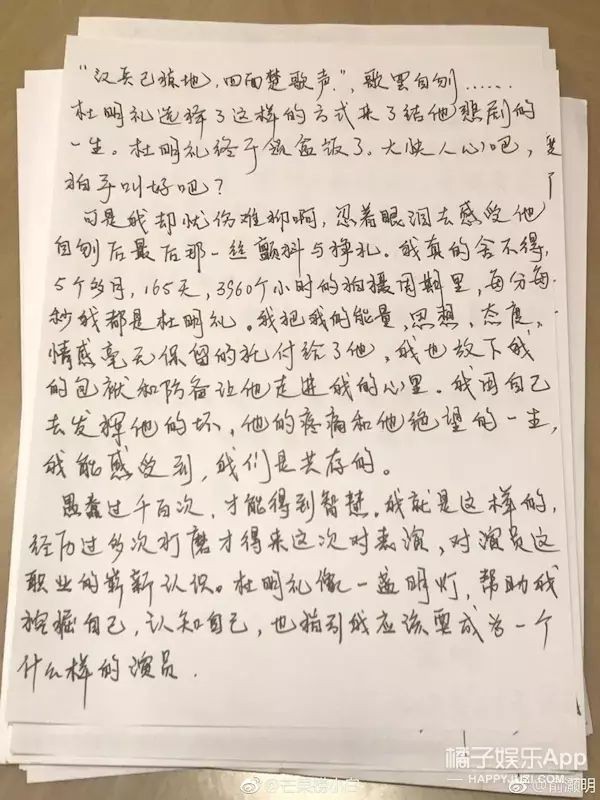 “汉兵已掠地,四面楚歌声.”,歌罢自刎……
杜明礼选择了这样的方式来了结他悲剧的
一生。杜明礼终于领盒饭了。大快人心吧,
拍手叫好吧?
可是我却忧伤难抑啊,忍着眼泪去感受他
自刎后最后那一丝颤抖与挣扎。我真的舍不得,
5个多月,165天,3960个小时的拍摄周期里,每分每
秒我都是杜明礼。我把我的能量,思想,态度,
情感毫无保留的托付给了他,我也放下我
的包袱和防备让他走进我的心里。我用自己
去发挥他的坏,他的疼痛和他绝望的一生,
我能感受到,我们是共存的。
愚蠢过千百次,才能得到智慧。我就是这样的,
经历过多次打磨才得来这次对表演,对演员这
职业的崭新认识。杜明礼像一盏明灯,帮助我
挖掘自己,认知自己,也指引我应该要成为一个
什么样的演员.
橘子娱乐App
HAPPY.JUZI.COM
@俞灏明